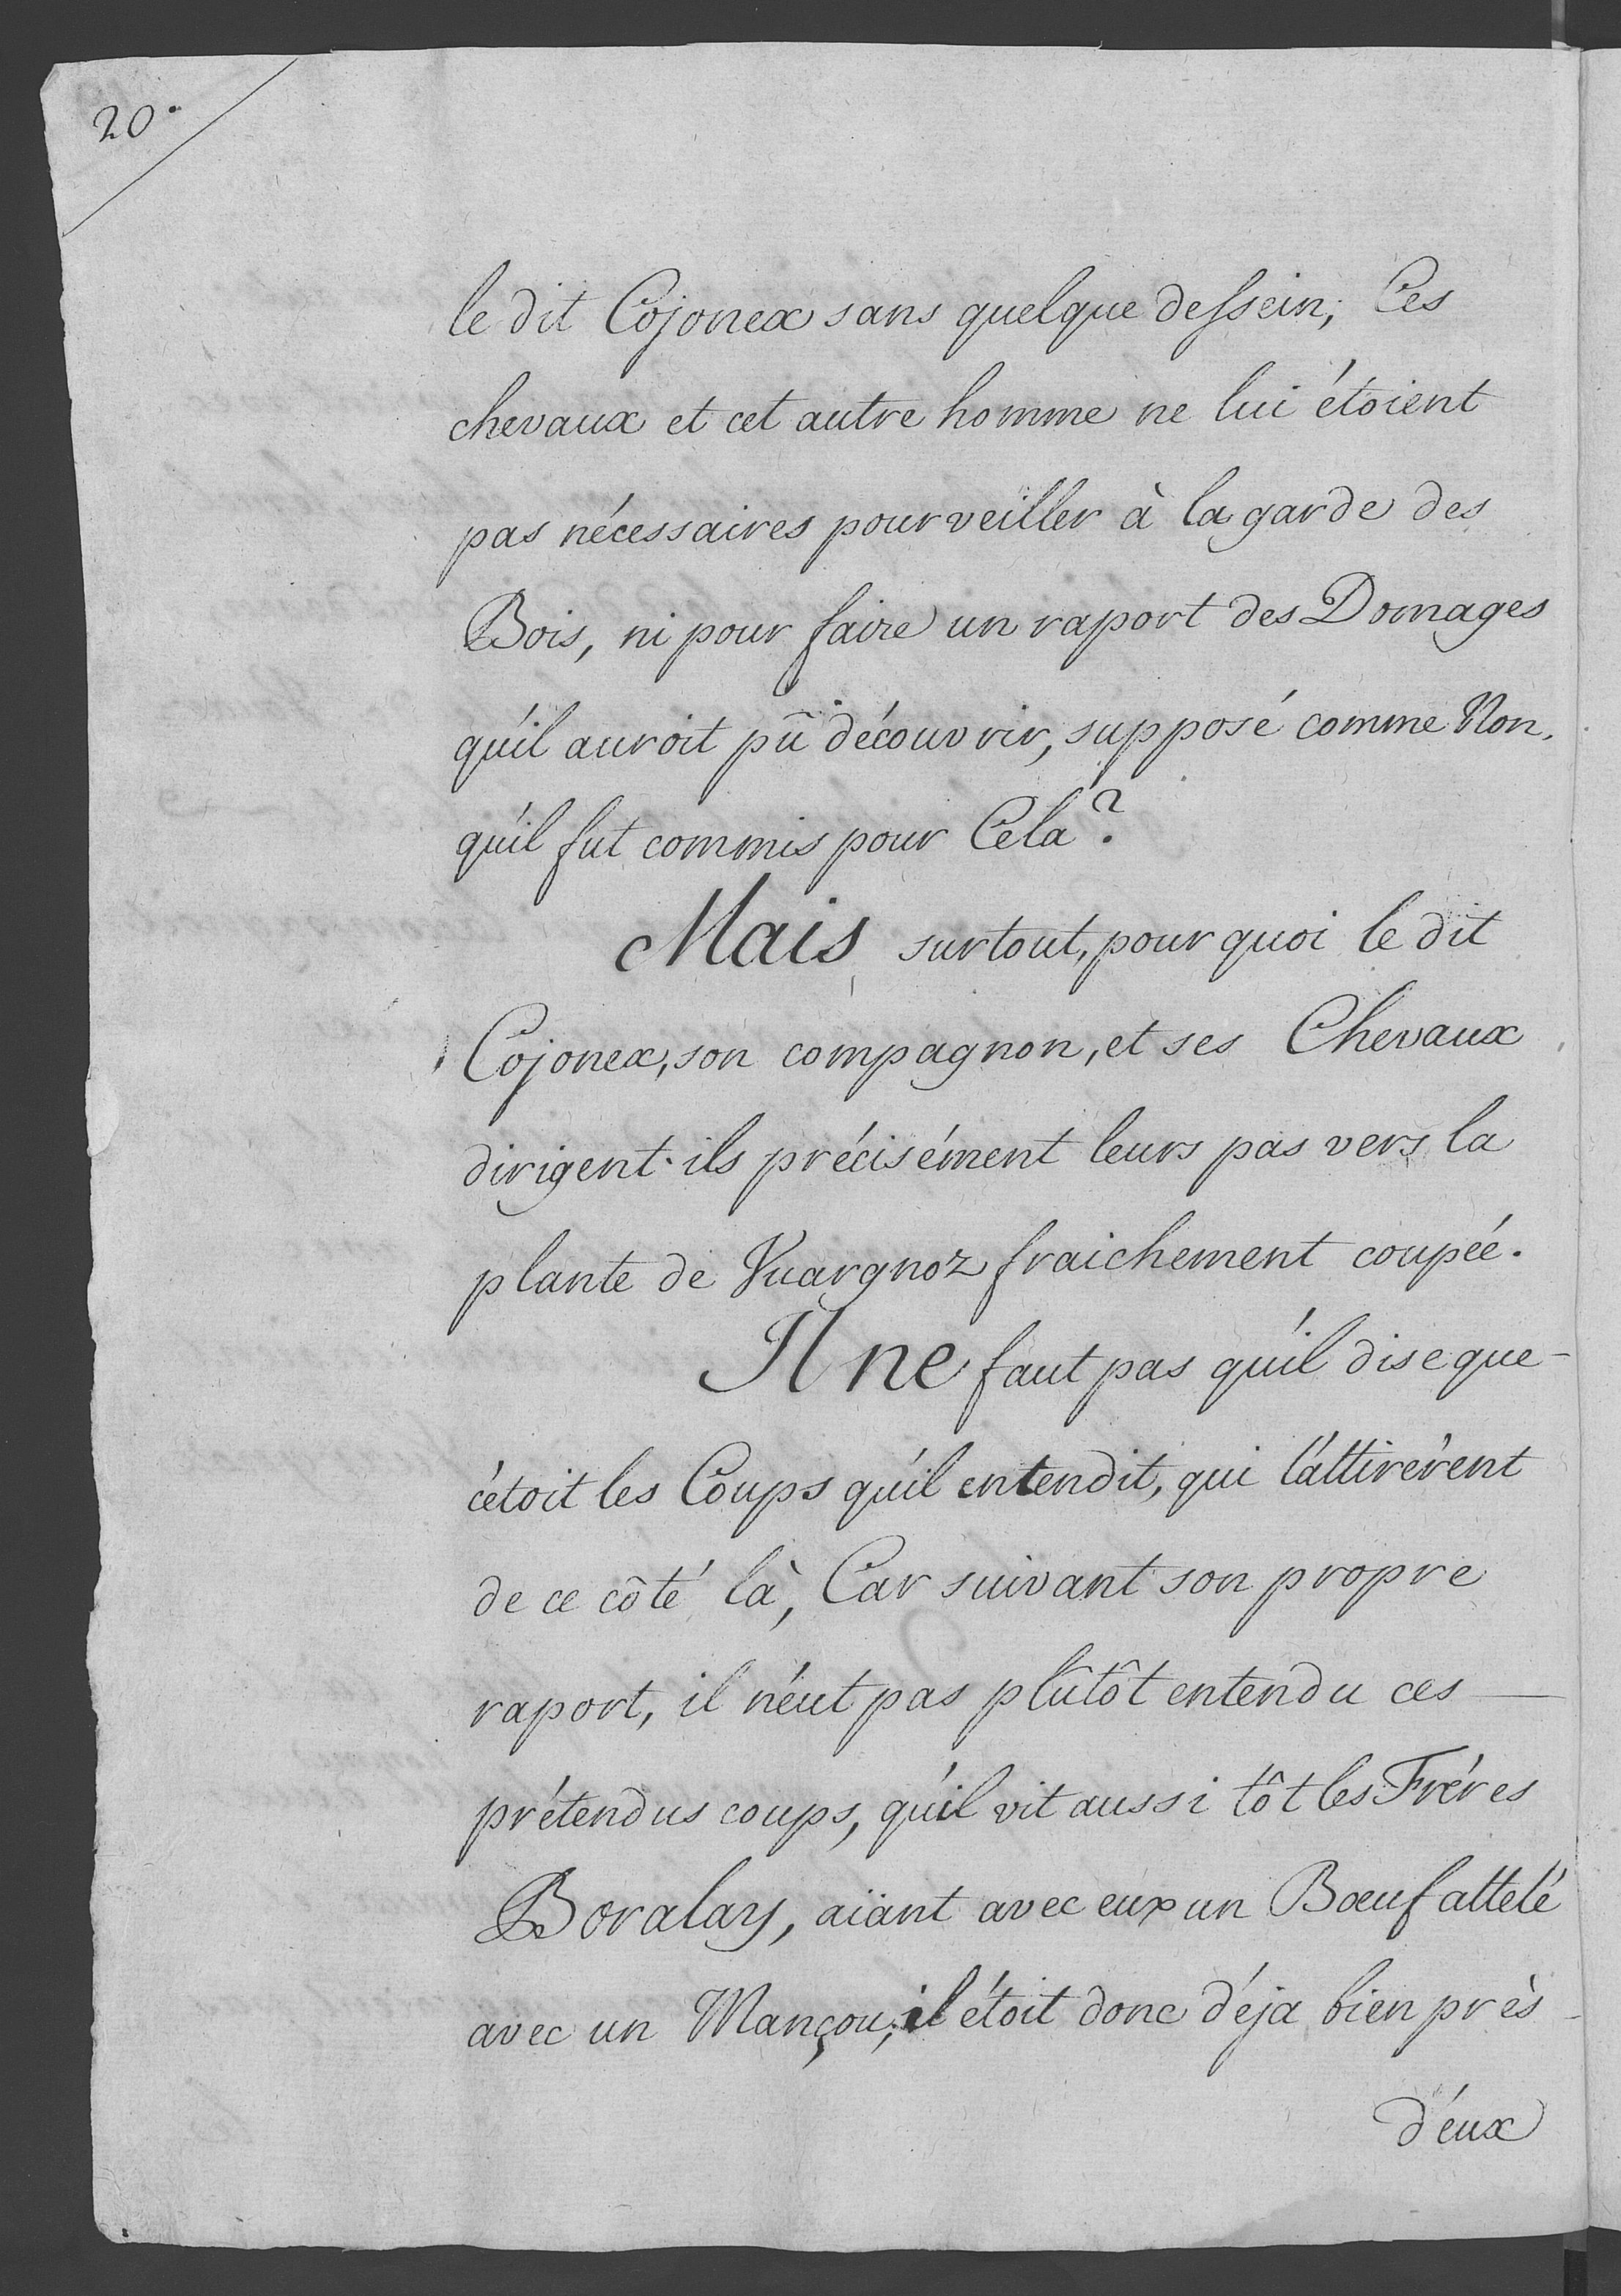 20.
le dit Cojonex sans quelque dessein; Ces
chevaux et cet autre homme ne lui étoient
pas nécessaires pour veiller à la garde des
Bois, ni pour faire un raport des Domages
qu'il auroit pû découvrir, supposé comme Non,
qu'il fut commis pour Cela?
Mais surtout, pourquoi le dit
Cojonex, son compagnon, et ses Chevaux
dirigent-ils précisément leurs pas vers la
plante de Vuargnoz fraichement coupée.
Il ne faut pas qu'il dise que
c'étoit les Coups qu'il entendit, qui l'attirèrent
de ce côté là, Car suivant son propre
raport, il n'eut pas plûtôt entendu ces
prétendus coups, qu'il vit aussi tôt les Fréres
Boralay, aïant avec eux un Bœuf attelé
avec un Mançou; il étoit donc déja bien près
d'eux